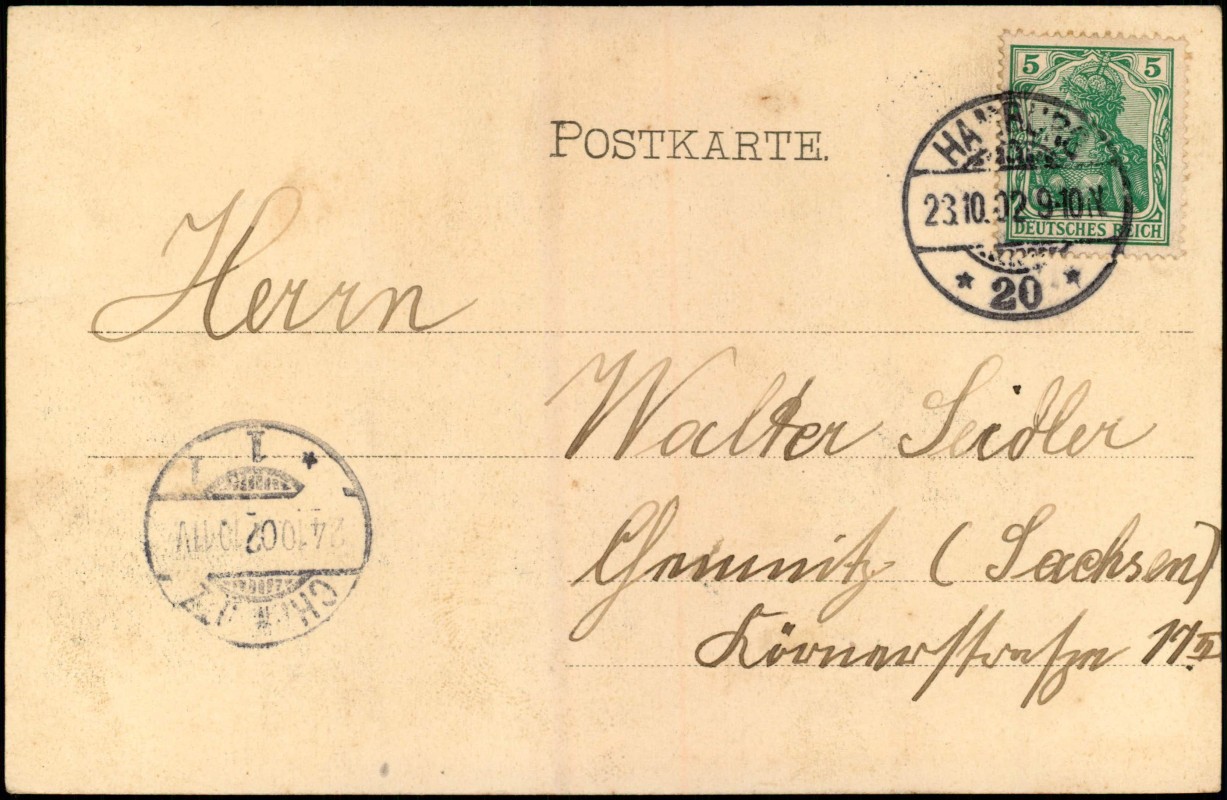 POSTKARTE.
5 5
DEUTSCHES REICH
HAMBURG
23.10.02 9-10N
* 20 *
Herrn
Walter Seidler
Chemnitz (Sachsen)
Körnerstraße 17 II
CHEMNITZ
24.10.02 10-11V
* 1